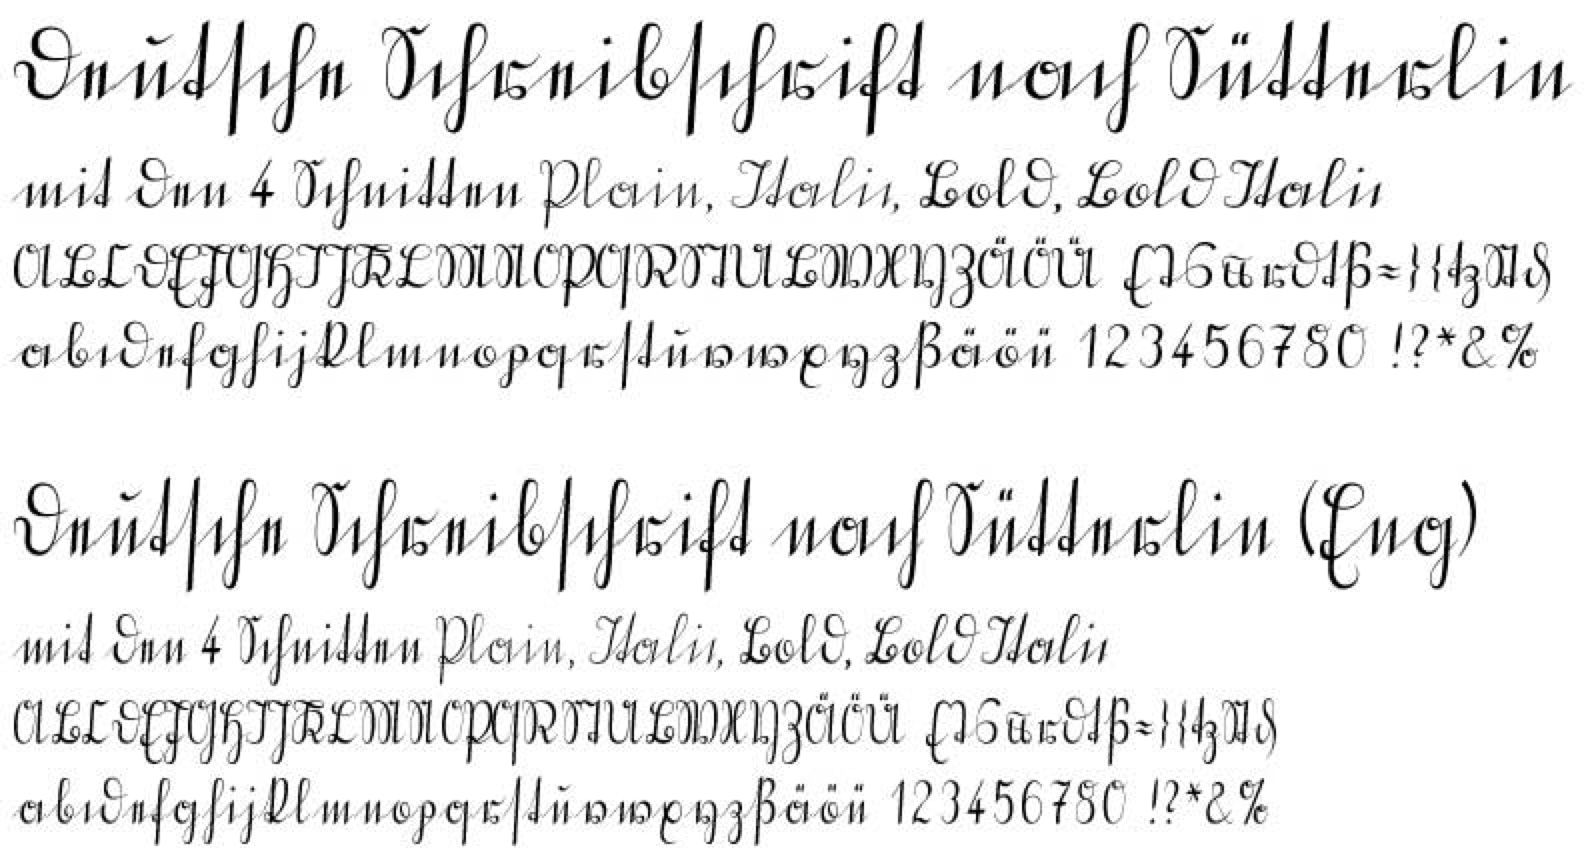 Deutsche Schreibschrift nach Sütterlin
mit den 4 Schnitten Plain, Italic, Bold, Bold Italic
ABCDEFGHIJKLMNOPQRSTUVWXYZÄÖÜ
abcdefghijklmnopqrſtuvwxyzßäöü 123456780 !?*&%
Deutsche Schreibschrift nach Sütterlin (Eng)
mit den 4 Schnitten Plain, Italic, Bold, Bold Italic
ABCDEFGHIJKLMNOPQRSTUVWXYZÄÖÜ
abcdefghijklmnopqrſtuvwxyzßäöü 123456780 !?*&%